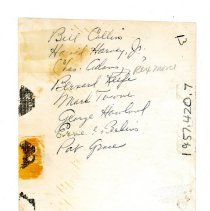 Bill Collins
Harold Harvey, Jr.
Chas. Adams, "Rexmere"
Bernard Keefe
Mark Towne
George Howland
Ernie C. Perkins
Pat Grace
1957.420.7